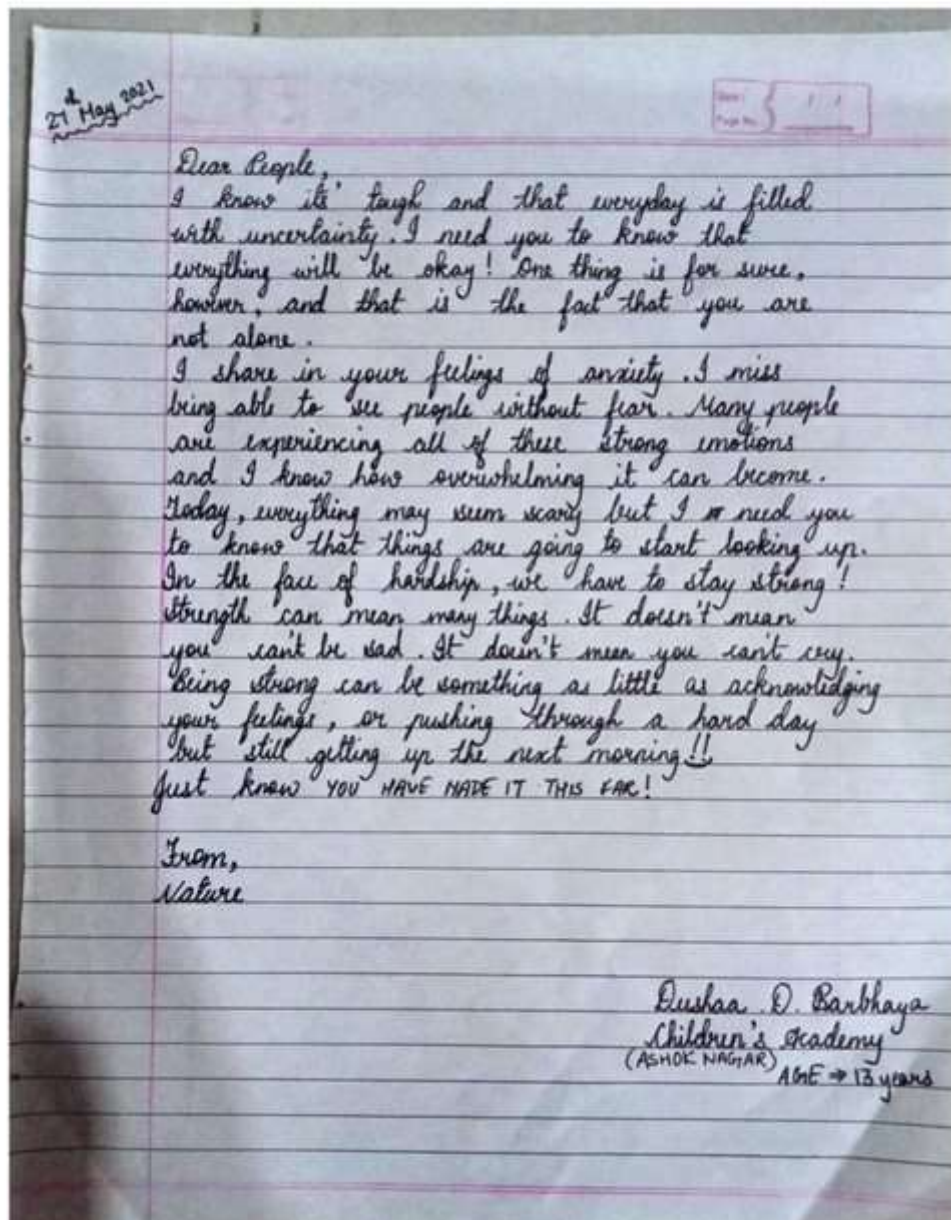 27th May 2021
Date :
Page No.
Dear People,
I know its' tough and that everyday is filled
with uncertainty. I need you to know that
everything will be okay! One thing is for sure,
however, and that is the fact that you are
not alone.
I share in your feelings of anxiety. I miss
being able to see people without fear. Many people
are experiencing all of these strong emotions
and I know how overwhelming it can become.
Today, everything may seem scary but I need you
to know that things are going to start looking up.
In the face of hardship, we have to stay strong!
Strength can mean many things. It doesn't mean
you can't be sad. It doesn't mean you can't cry.
Being strong can be something as little as acknowledging
your feelings, or pushing through a hard day
but still getting up the next morning!!
Just know YOU HAVE MADE IT THIS FAR!
From,
Nature
Dushaa. D. Barbhaya
Children's Academy
(ASHOK NAGAR)
AGE ⇒ 13 years